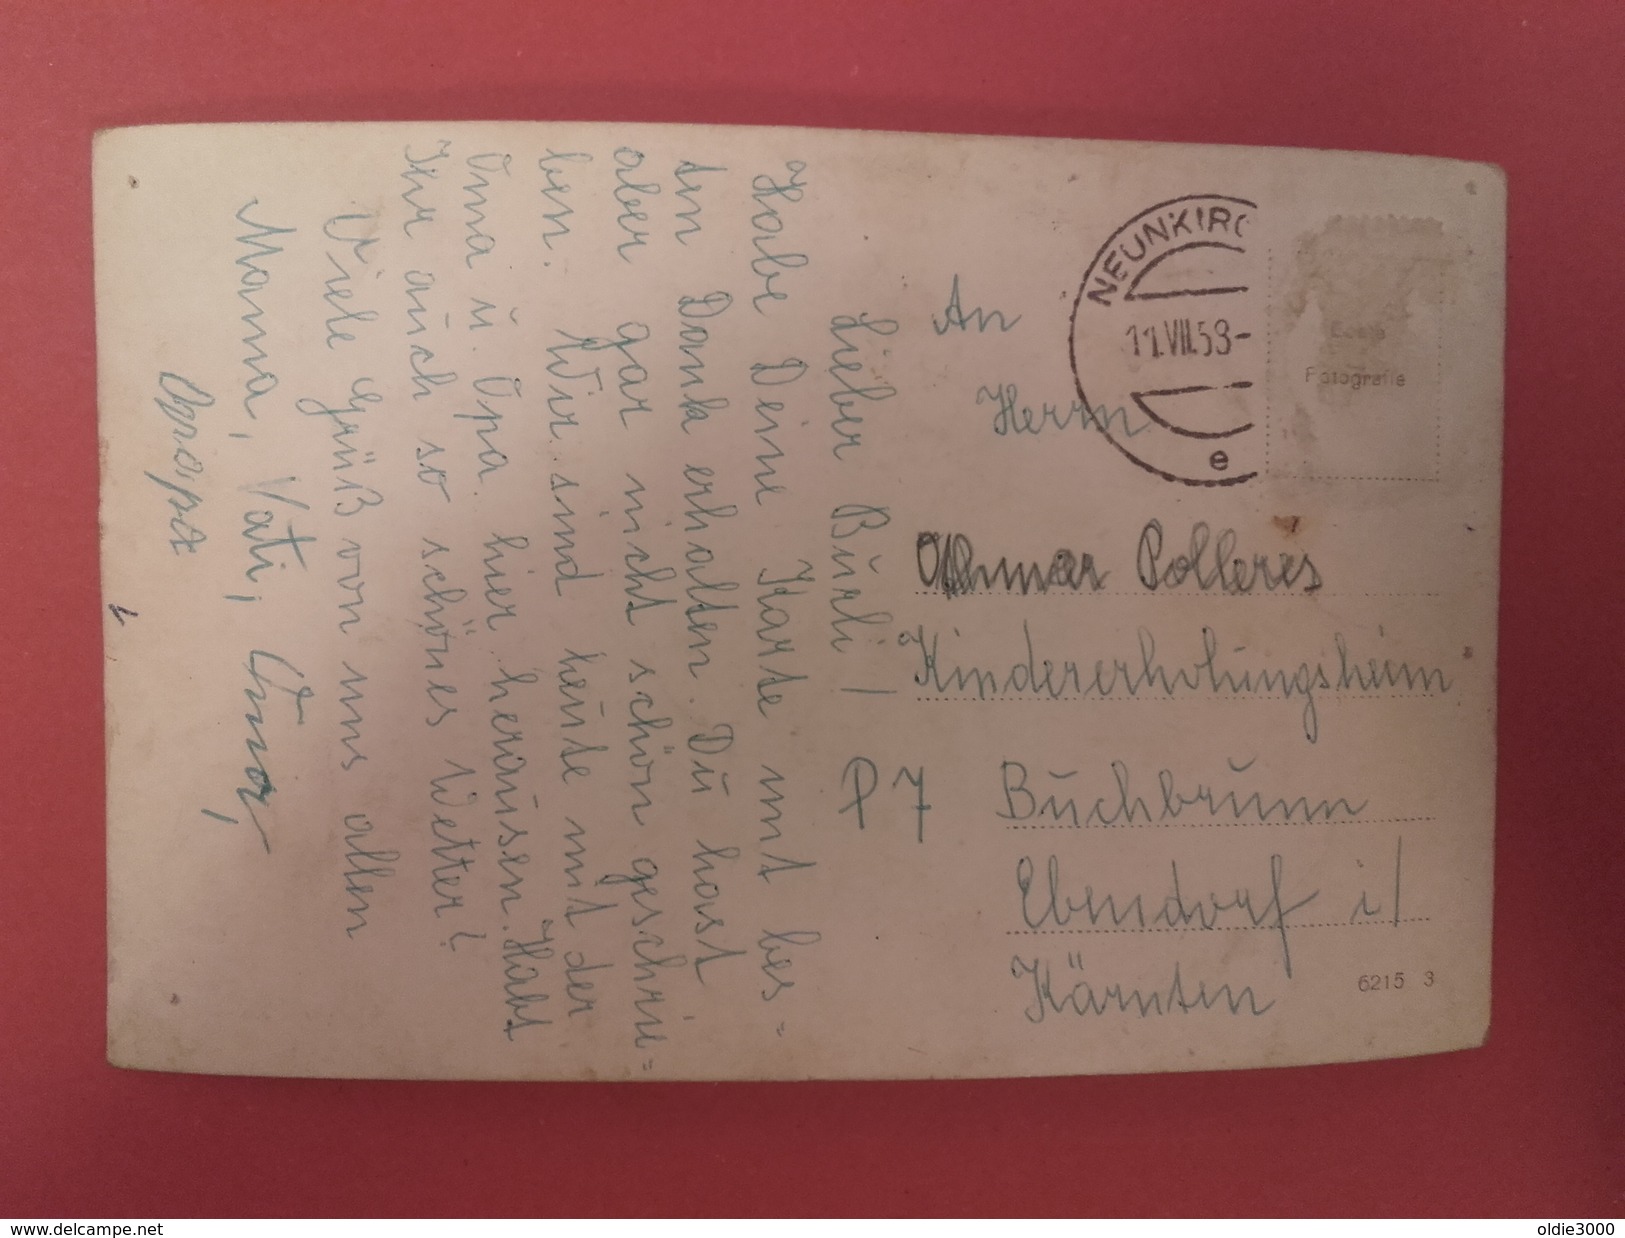 Lieber Burli!
Habe Deine Karte mit bes=
ten Dank erhalten. Du hast
aber gar nicht schön geschrie=
ben. Wir sind heute mit der
Oma u. Opa hier heraussen. Habt
Ihr auch so schönes Wetter?
Viele Grüß von uns allen
Mama, Vati, Oma,
Opapa
NEUNKIRC
11.VII.53-
e
Echte
Fotografie
An
Herrn
Othmar Polleres
Kindererholungsheim
P 7 Buchbrunn
Ebendorf i/
Kärnten
6215 3
www.delcampe.net
oldie3000